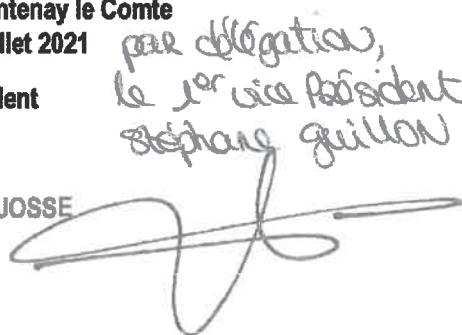 ntenay le Comte
illet 2021
par délégation,
dent
le 1er vice Président
Stéphane GuiLLON
JOSSE